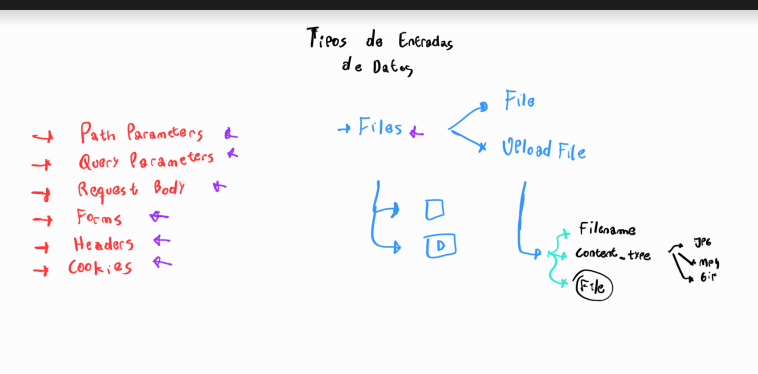 Tipos de Entradas
de Datos
Path Parameters
Query Parameters
Request Body
Forms
Headers
Cookies
Files
File
Upload File
D
Filename
content_type
JPG
mp4
Gif
File